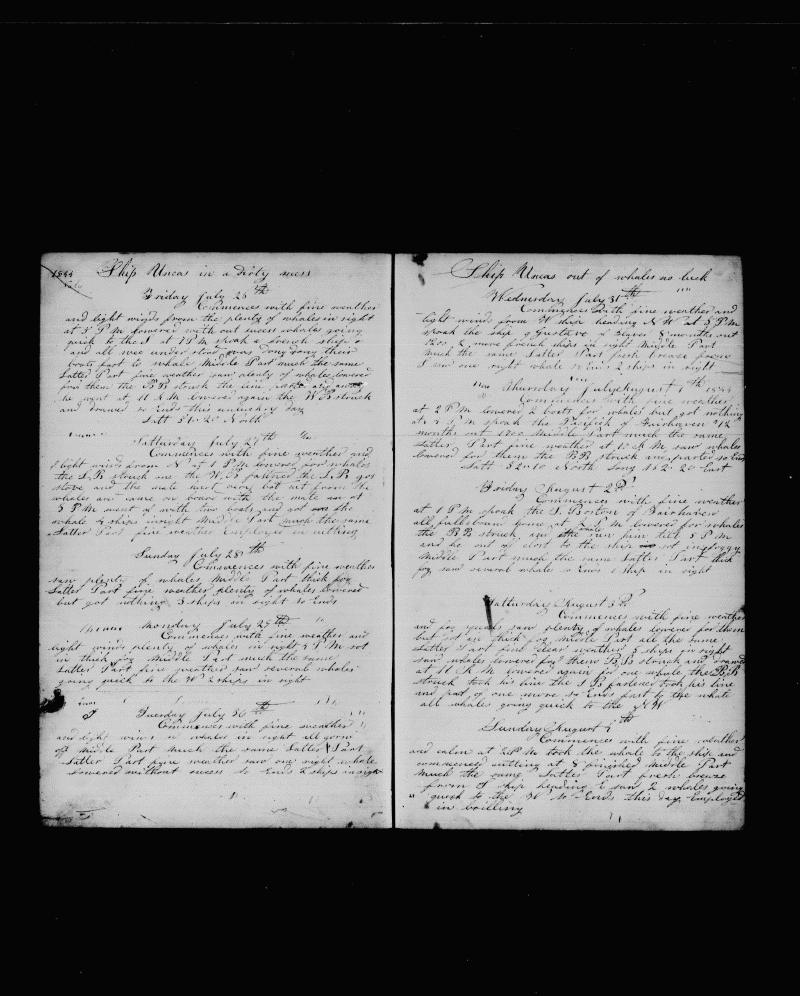 1844 Ship Uncas in a dirty mess
July
Friday July 26th
Commences with fine weather
and light winds from the plenty of whales in sight
at 3 P M lowered with out sucess whales going
quick to the at 7 P M spoak a french ship
and all wee under stood was their
boats fast to whale Middle Part much the same
Latter Part fine weather saw plenty of whales lowered
for them the B B struck the line and
he went at 11 A M lowered again the W B struck
and drawed so Ends this unlucky day
Latt 51:20 North
Saturday July 27th
Commences with fine weather and
light winds from N at 1 P M lowered for whales
the L B struck one the W B fastened the L B got
stove and the mate went over but cut from the
whales and came on board with the mate at
3 P M went of with two boats and got the
whale 4 ships in sight Middle Part much the same
Latter Part fine weather Employed in cutting
Sunday July 28th
Commences with fine weather
saw plenty of whales Middle Part thick fog
Latter Part fine weather plenty of whales lowered
but got nothing 3 ships in sight so Ends
Monday July 29th
Commences with fine weather and
light winds plenty of whales in sight 5 P M sot
in thick fog Middle Part much the same
Latter Part fine weather saw several whales
going quick to the W 2 ships in sight
Tuesday July 30th
Commences with fine weather
and light winds whales in sight all going
off Middle Part much the same Latter Part
Latter Part fine weather saw one right whale
lowered without sucess so Ends 2 ships in sight
Ship Uncas out of whales no luck
Wednesday July 31th
Commences with fine weather and
light winds from W ship heading N W at 5 P M
spoak the ship Gustave 8 months out
1200 2 more french ships in sight Middle Part
much the same Latter Part fresh breeze from
saw one right whale 2 ships in sight
Thursday July August 1th 1844
Commences with fine weather
at 2 P M lowered 2 boats for whales but got nothing
at P M spoak the Pasifick of Fairhaven 12
months out 1700 Middle Part much the same
Latter Part fine weather at 10 A M saw whales
lowered for them the B B struck and parted so Ends
Latt 52:10 North Long 162:20 East
Friday August 2d
Commences with fine weather
at 1 P M spoak the S Boston of Fairhaven
all full bound home at P M lowered for whales
the B B struck and run him till 5 P M
and he cut of close to the ship sot in foggy
Middle Part much the same Latter Part thick
fog saw several whale so Ends 1 ship in sight
Saturday August 3d
Commences with fine weather
and fog saw plenty of whales lowered for them
but sot in thick fog Middle Part all the same
Latter Part fine clear weather 5 ships in sight
saw whales lowered for them B B struck and drawed
at 11 A M lowered again for one whale the B B
struck took his line the S B fastened took his line
and part of one more so Ends fast to the whale
all whales going quick to the N W
Sunday August 4th
Commences with fine weather
and calm at 2 P M took the whale to the ship and
commenced cutting at 8 finished Middle Part
much the same Latter Part fresh breeze
from S ship heading E saw 2 whales going
quick to the W so Ends this day Employed
in boilling